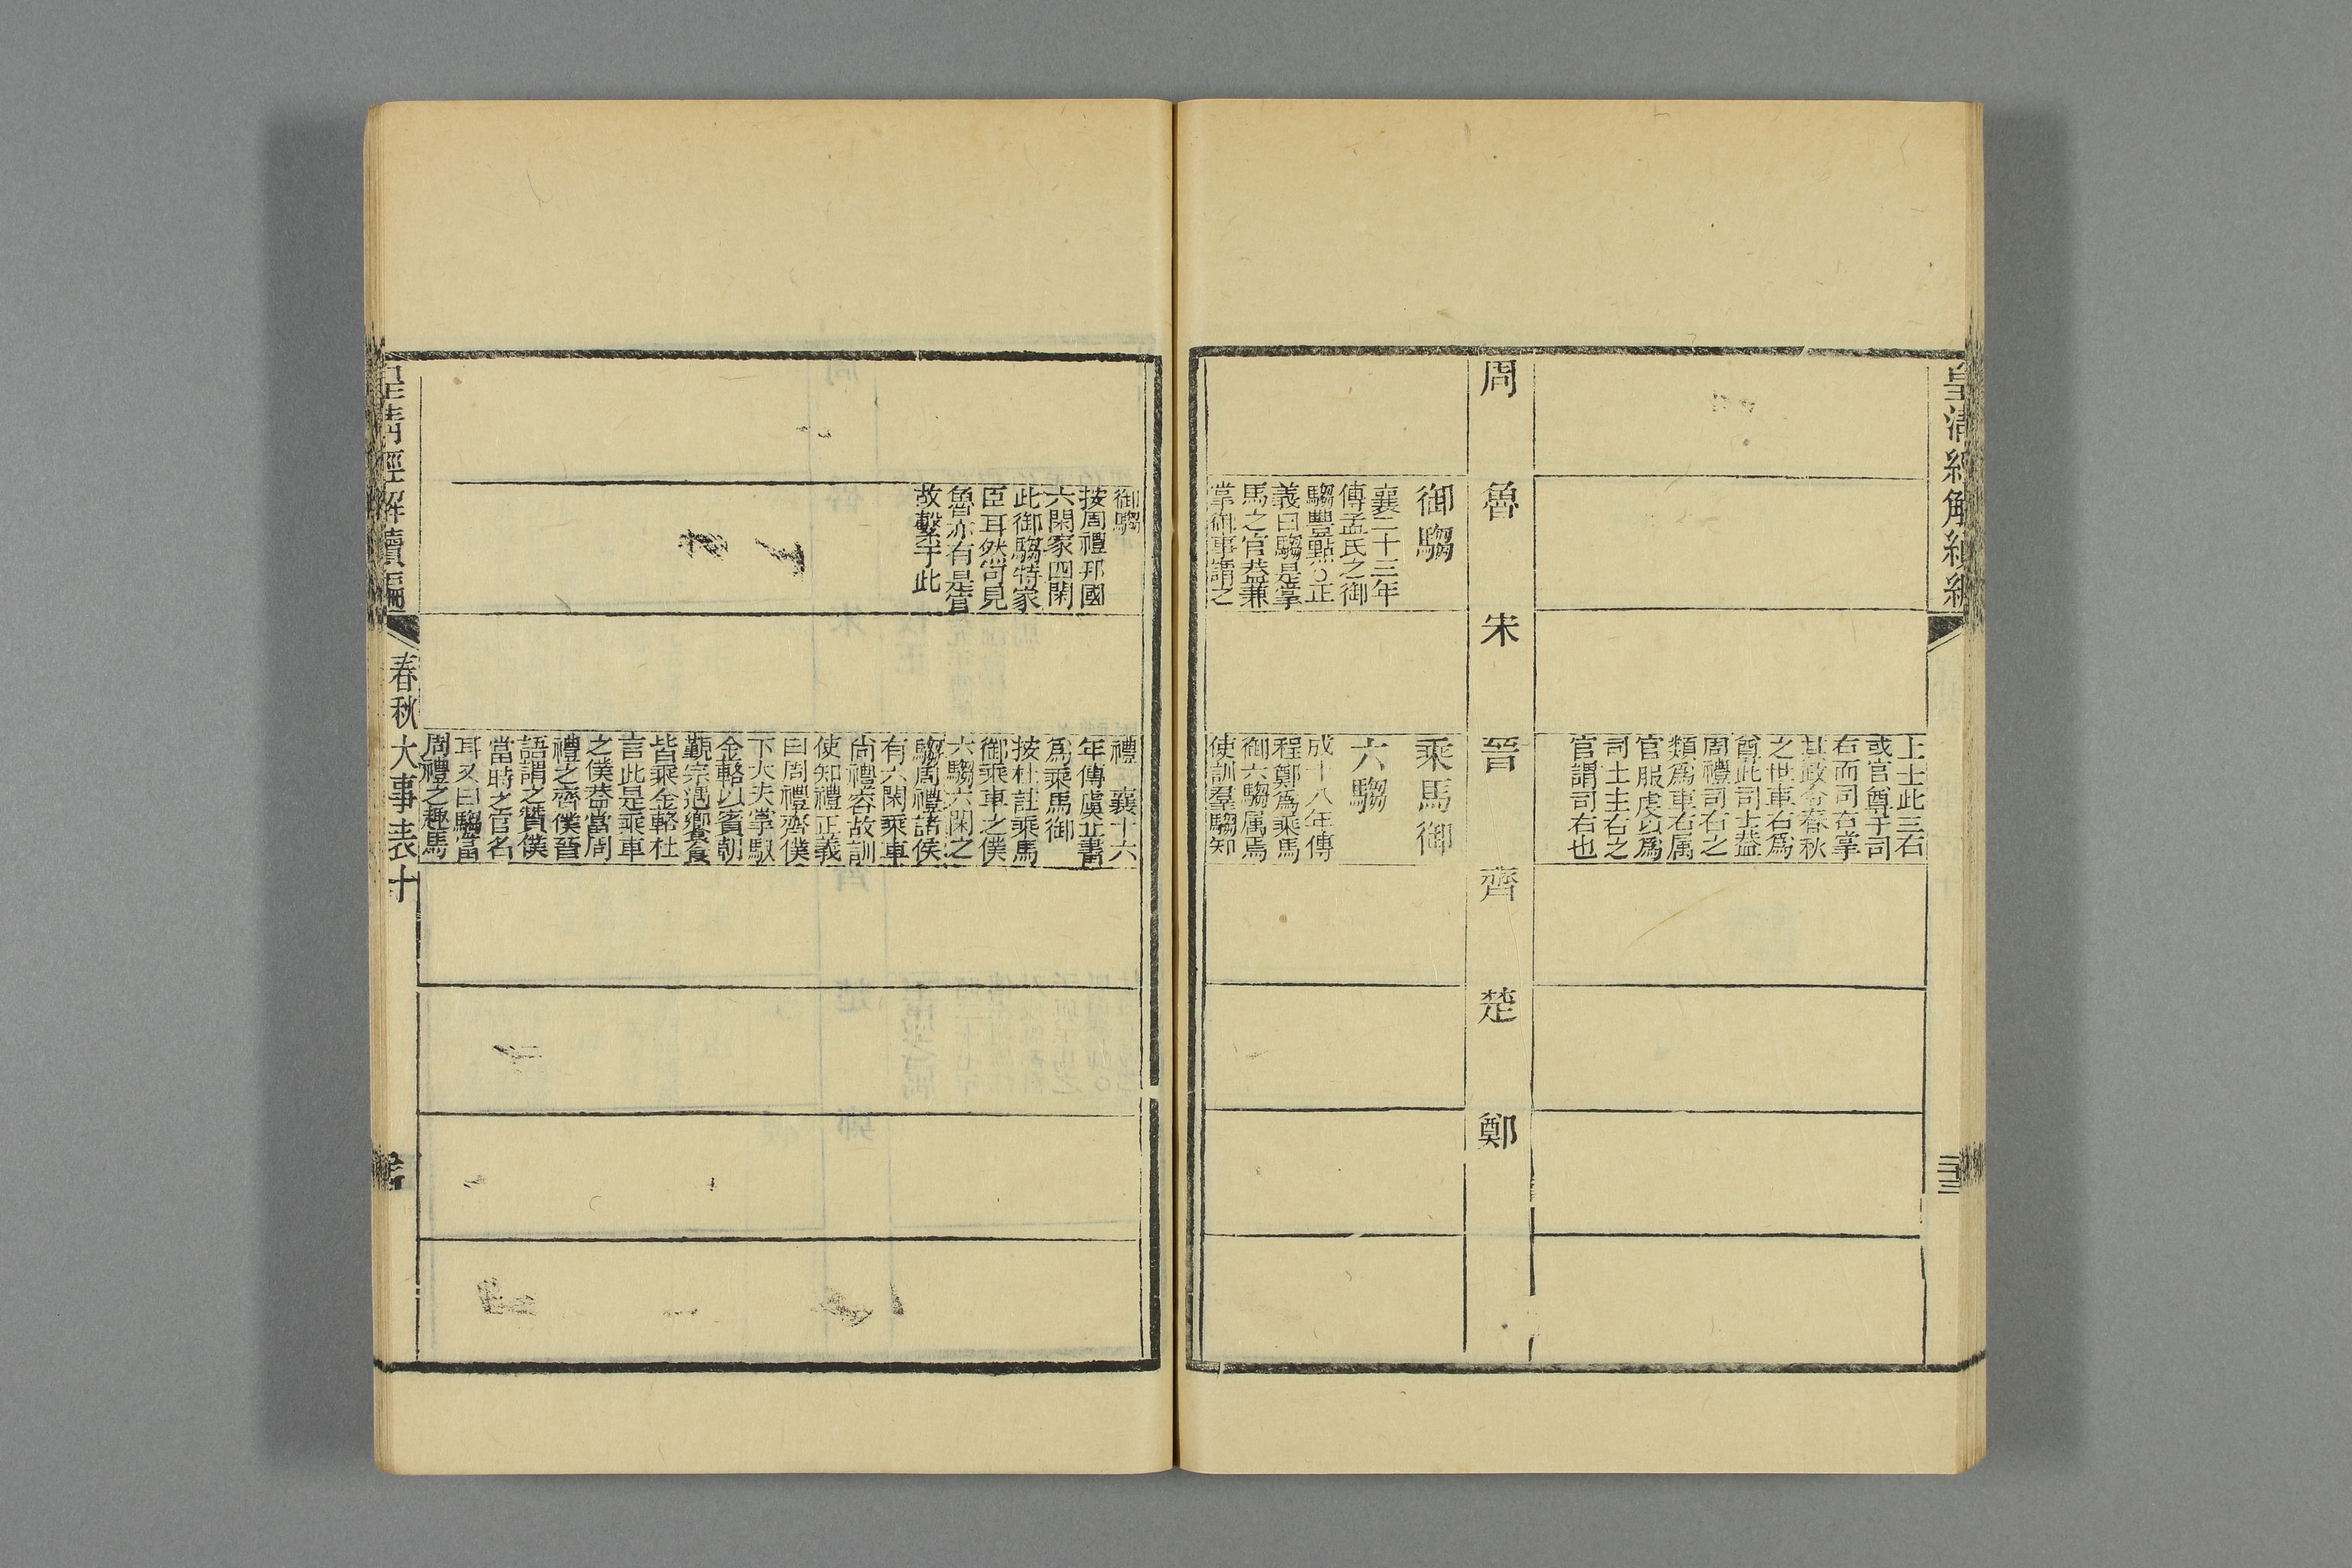 皇清經解續編
上士此三右
或官尊于司
右而司右掌
其政令春秋
之世車右爲
尊此司士蓋
周禮司右之
類爲車右属
官服虔以爲
司士主右之
官謂司右也
周
魯
宋
晉
齊
楚
鄭
御騶
襄二十三年
傳孟氏之御
騶豐點○正
義曰騶是掌
馬之官蓋兼
掌御事謂之
乘馬御
六騶
成十八年傳
程鄭爲乘馬
御六騶属焉
使訓羣騶知
御騶
按周禮邦國
六閑家四閑
此御騶特家
臣耳然尚見
魯亦有是官
故繫于此
禮 襄十六
年傳虞丘書
爲乘馬御
按杜註乘馬
御乘車之僕
六騶六閑之
騶周禮諸侯
有六閑乘車
尚禮容故訓
使知禮正義
曰周禮齊僕
下大夫掌馭
金輅以賓朝
覲宗遇饗食
皆乘金輅杜
言此是乘車
之僕蓋當周
禮之齊僕晉
語謂之贊僕
當時之官名
耳又曰騶當
周禮之趣馬
皇清經解續編
春秋大事表十